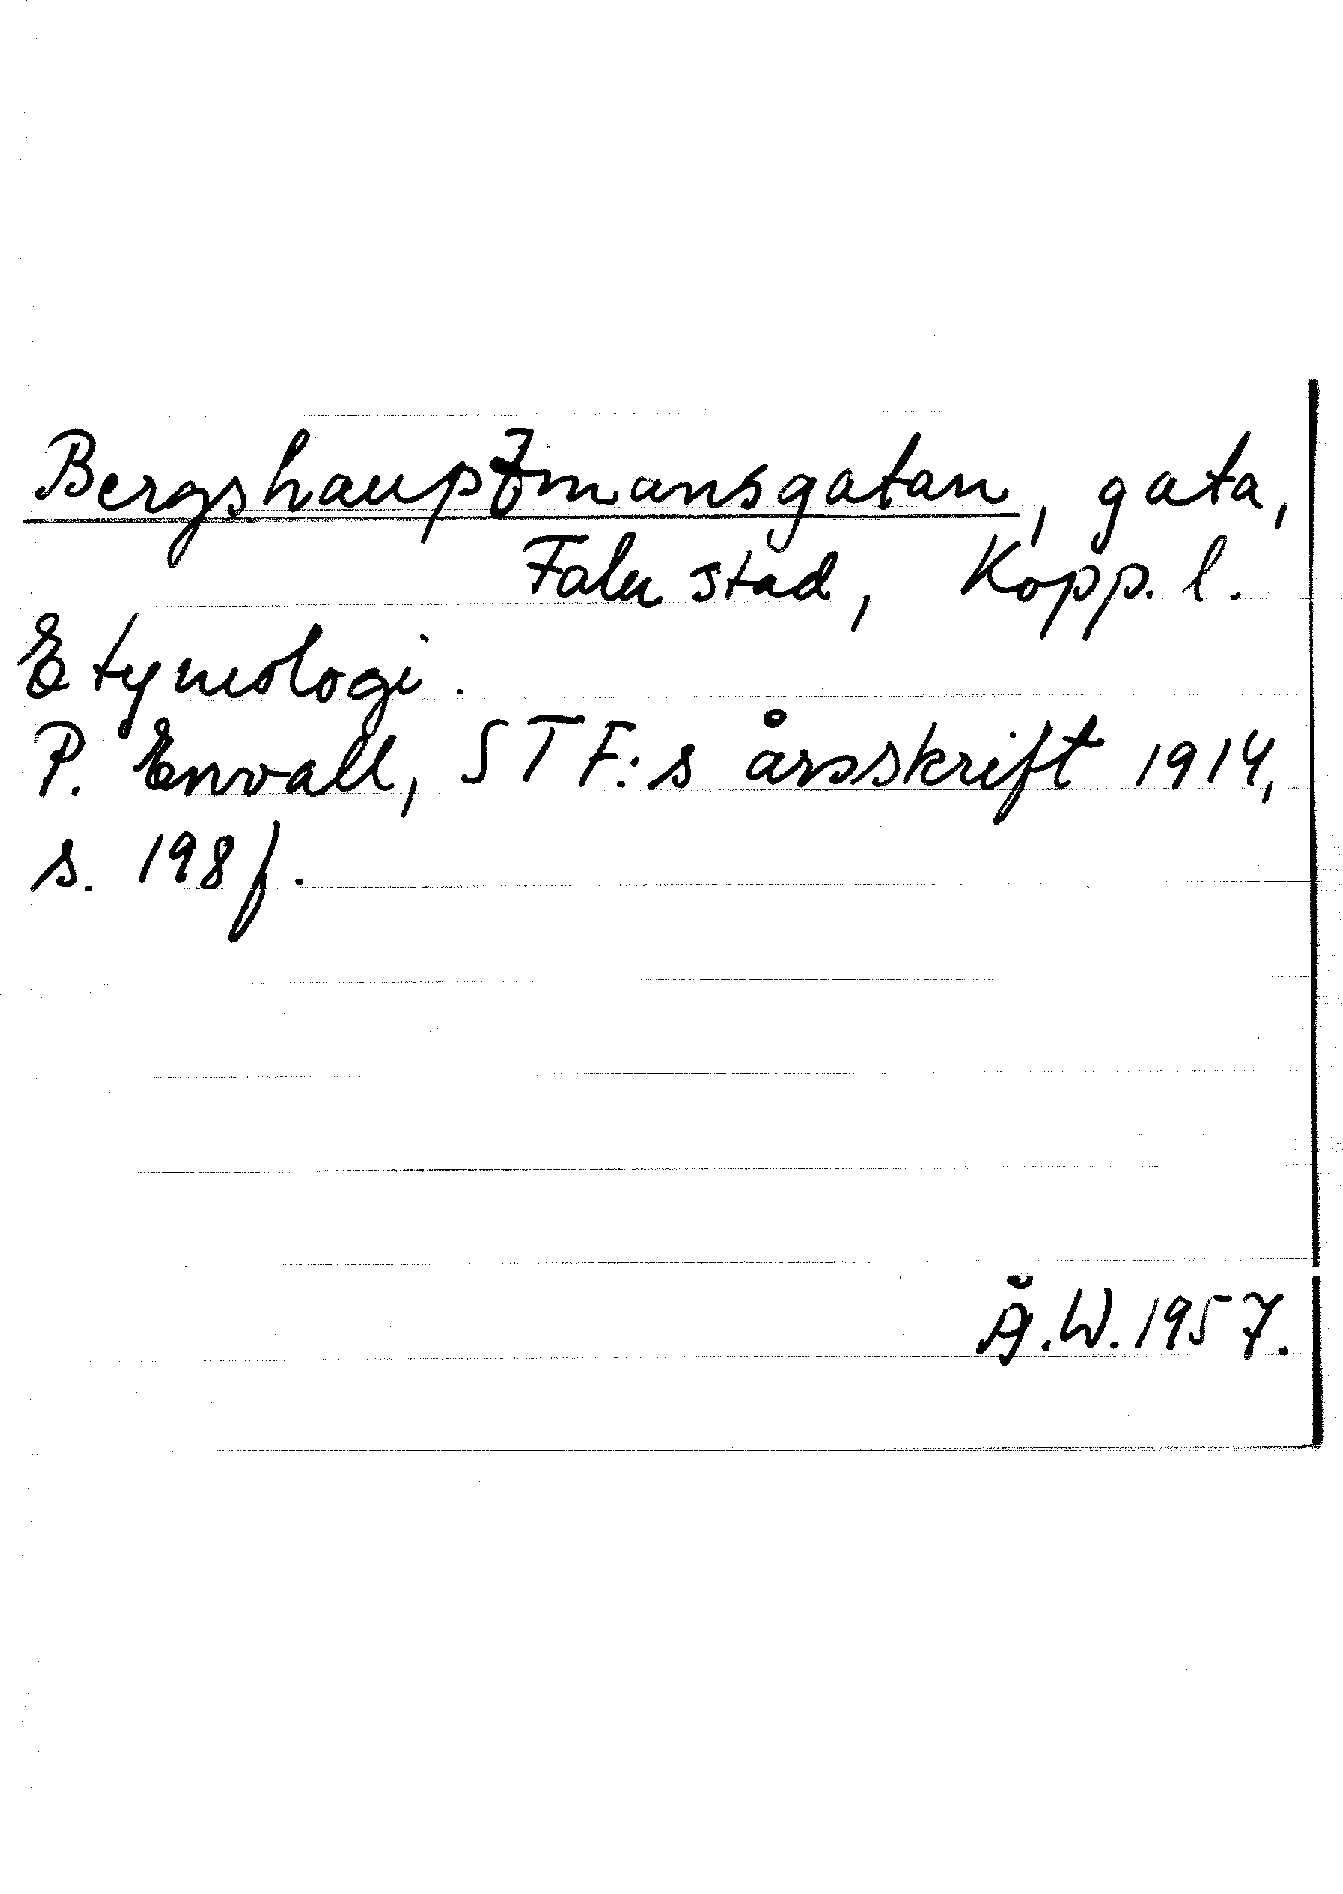 Bergshauptmansgatan, gata,
Falu stad, Kopp. l.
Etymologi.
P. Envall, STF:s årsskrift 1914,
s. 198 f.
Å.W. 1957.